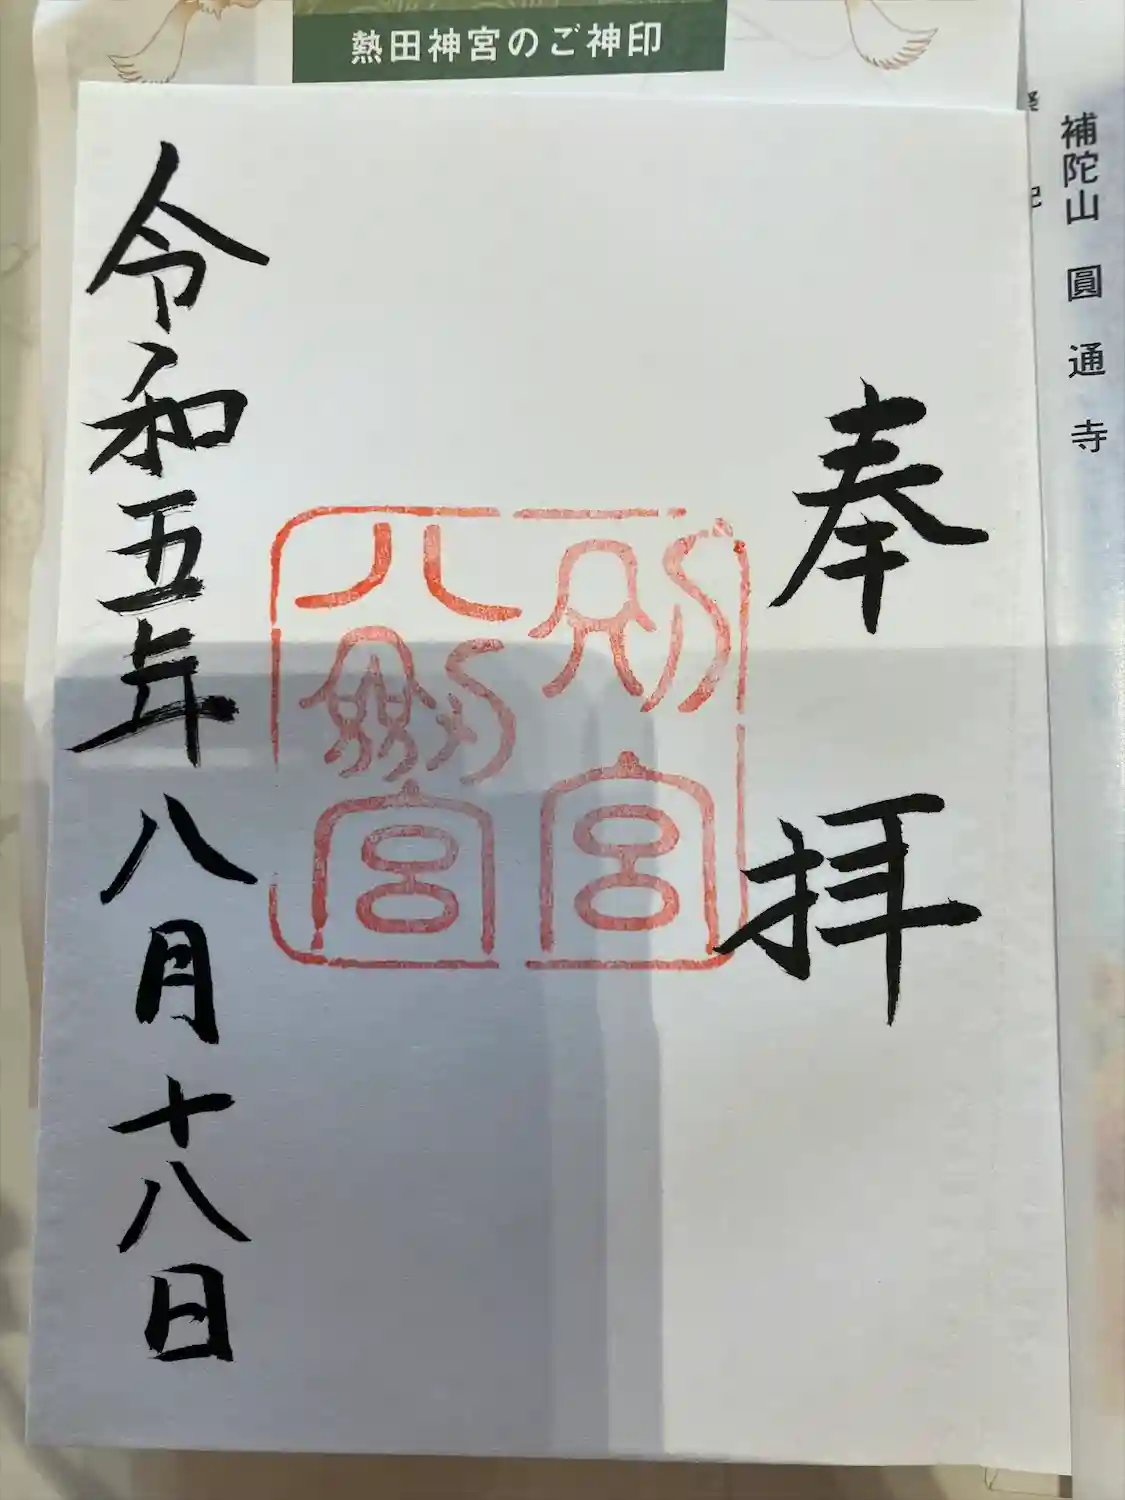 熱田神宮のご神印
補陀山 圓通寺
奉拝
別宮
八劔宮
令和五年八月十八日